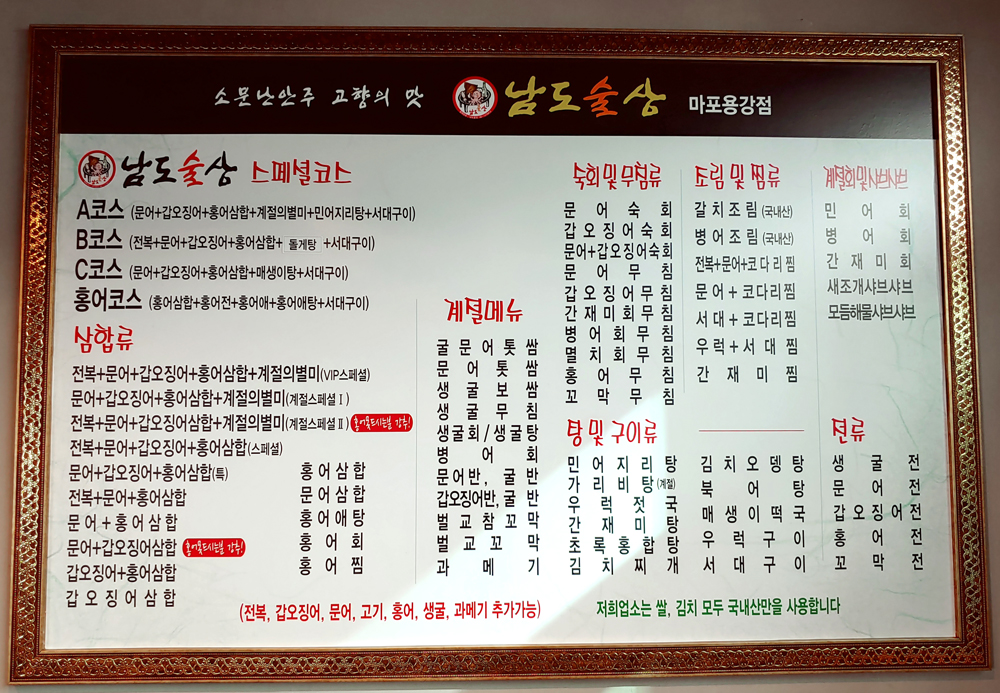 소문난안주 고향의 맛 남도술상 마포용강점
남도술상 스페셜코스
A코스 (문어+갑오징어+홍어삼합+계절의별미+민어지리탕+서대구이)
B코스 (전복+문어+갑오징어+홍어삼합+ 돌게탕 +서대구이)
C코스 (문어+갑오징어+홍어삼합+매생이탕+서대구이)
홍어코스 (홍어삼합+홍어전+홍어애+홍어애탕+서대구이)
삼합류
전복+문어+갑오징어+홍어삼합+계절의별미(VIP스페셜)
문어+갑오징어+홍어삼합+계절의별미(계절스페셜Ⅰ)
전복+문어+갑오징어+홍어삼합+계절의별미(계절스페셜Ⅱ)
전복+문어+갑오징어+홍어삼합(스페셜)
문어+갑오징어+홍어삼합(특)
전복+문어+홍어삼합
문어+홍어삼합
문어+갑오징어삼합
갑오징어+홍어삼합
갑오징어삼합
홍어삼합
문어삼합
홍어애탕
홍어회
홍어찜
계절메뉴
굴문어톳쌈
문어톳쌈
생굴보쌈
생굴무침
생굴회/생굴탕
병어회
문어반, 굴반
갑오징어반,굴반
벌교참꼬막
벌교꼬막
과메기
숙회 및 무침류
문어숙회
갑오징어숙회
문어+갑오징어숙회
문어무침
갑오징어무침
간재미회무침
병어회무침
멸치회무침
홍어무침
꼬막무침
조림 및 찜류
갈치조림(국내산)
병어조림(국내산)
전복+문어+코다리찜
문어+코다리찜
서대+코다리찜
우럭+서대찜
간재미찜
계절회 및 샤브샤브
민어회
병어회
간재미회
새조개샤브샤브
모듬해물샤브샤브
탕 및 구이류
민어지리탕
가리비탕(계절)
우럭젓국
간재미탕
초록홍합탕
김치찌개
김치오뎅탕
북어탕
매생이떡국
우럭구이
서대구이
전류
생굴전
문어전
갑오징어전
홍어전
꼬막전
(전복, 갑오징어, 문어, 고기, 홍어, 생굴, 과메기 추가가능)
저희업소는 쌀, 김치 모두 국내산만을 사용합니다